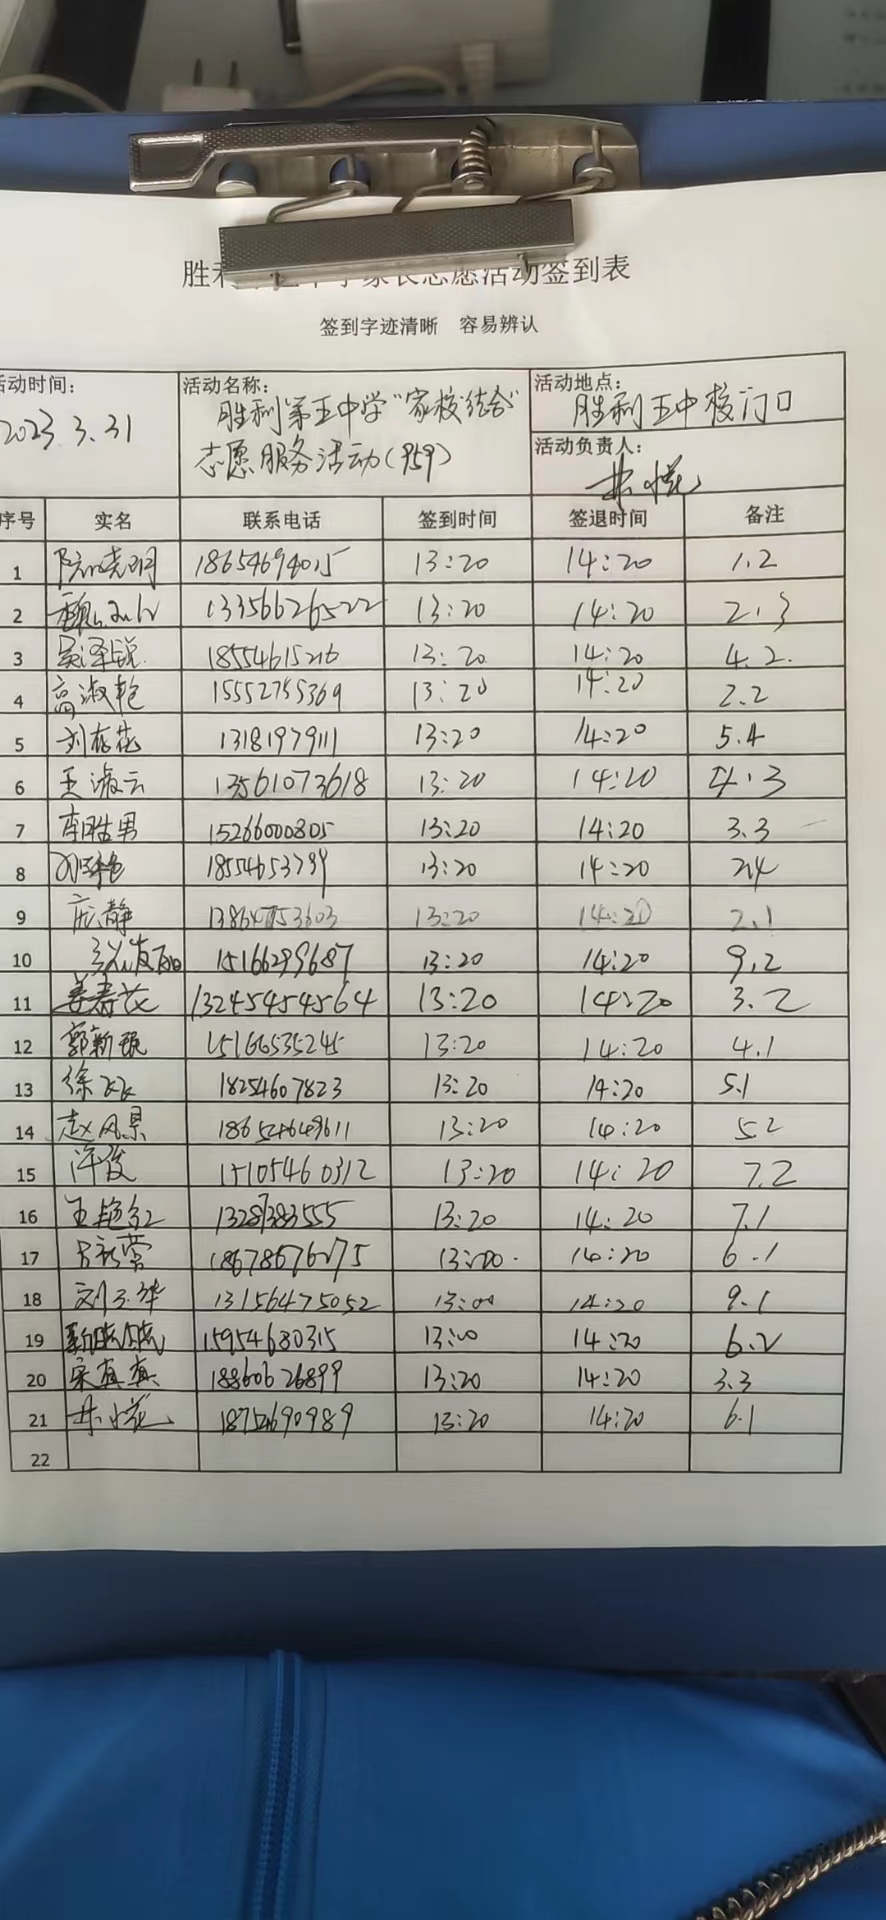 家长志愿活动签到表
签到字迹清晰 容易辨认
活动时间: 活动名称: 活动地点:
2023.3.31 胜利第五中学"家校结合" 胜利五中校门口
志愿服务活动(959) 活动负责人:
序号 实名 联系电话 签到时间 签退时间 备注
1 18654694015 13:20 14:20 1.2
2 13356626522 13:20 14:20 2.3
3 吴泽锐 18554615216 13:20 14:20 4.2.
4 高淑艳 15552755369 13:20 14:20 2.2
5 刘春花 13181979111 13:20 14:20 5.4
6 王海云 13561073618 13:20 14:20 4.3
7 车胜男 15266000805 13:20 14:20 3.3
8 13:20 14:20 2.4
9 庞静 13:20 14:20 2.1
10 15166299687 13:20 14:20 9.2
11 姜寿花 13245454564 13:20 14:20 3.2
12 郭新 15166535245 13:20 14:20 4.1
13 徐飞飞 18254607823 13:20 14:20 5.1
14 赵风景 18652464961 1 13:20 14:20 5.2
15 15105460312 13:20 14:20 7.2
16 王艳红 13287383555 13:20 14:20 7.1
17 18678676275 13:00. 14:20 6.1
18 刘玉华 13156475052 13:00 14:20 9.1
19 靳晓晓 15954680315 13:00 14:20 6.2
20 宋真真 18860626899 13:20 14:20 3.3
21 18754690989 13:20 14:20 6.1
22